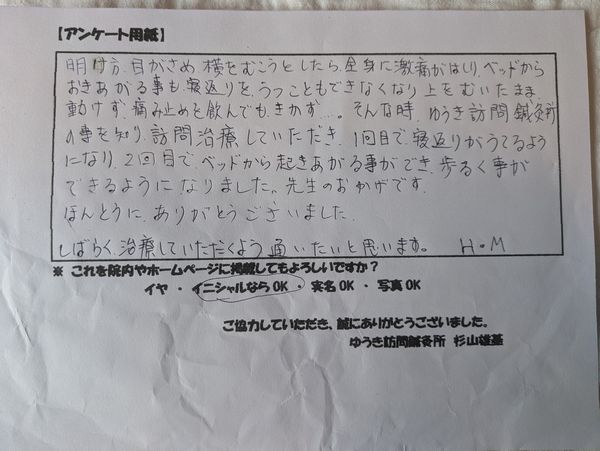 【アンケート用紙】
明け方、目がさめ、横をむこうとしたら、全身に激痛がはしり、ベッドから
おきあがる事も、寝返りを、うつこともできなくなり上をむいたまま、
動けず、痛み止めを飲んでもきかず…。そんな時、ゆうき訪問鍼灸所
の事を知り、訪問治療していただき、1回目で、寝返りがうてるよう
になり、2回目で、ベッドから起きあがる事ができ、歩るく事が
できるようになりました。先生のおかげです。
ほんとうに、ありがとうございました。
しばらく、治療していただくよう通いたいと思います。 H・M
※ これを院内やホームページに掲載してもよろしいですか？
イヤ ・ イニシャルなら OK ・ 実名 OK ・ 写真 OK
ご協力していただき、誠にありがとうございました。
ゆうき訪問鍼灸所 杉山雄基